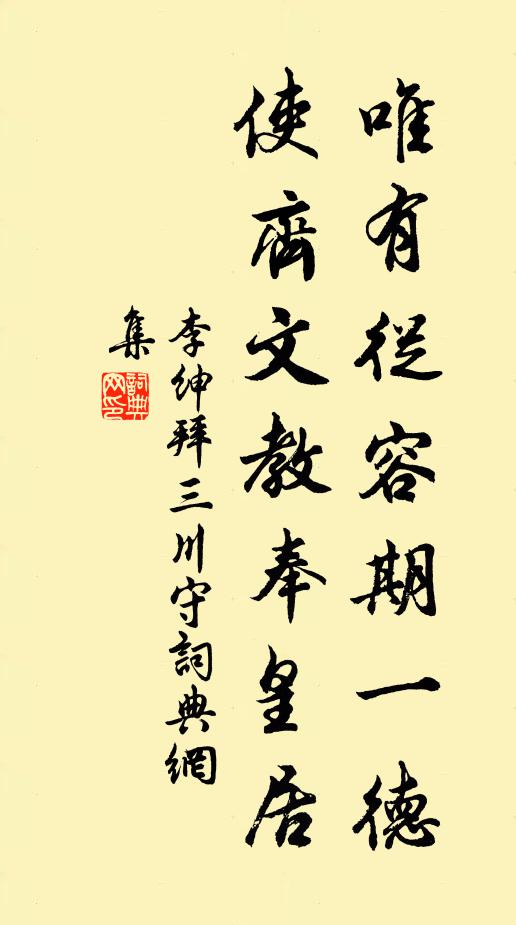 唯有從容期一德
使齊文教奉皇居
李紳拜三川守詞典網
集
詞典
网印